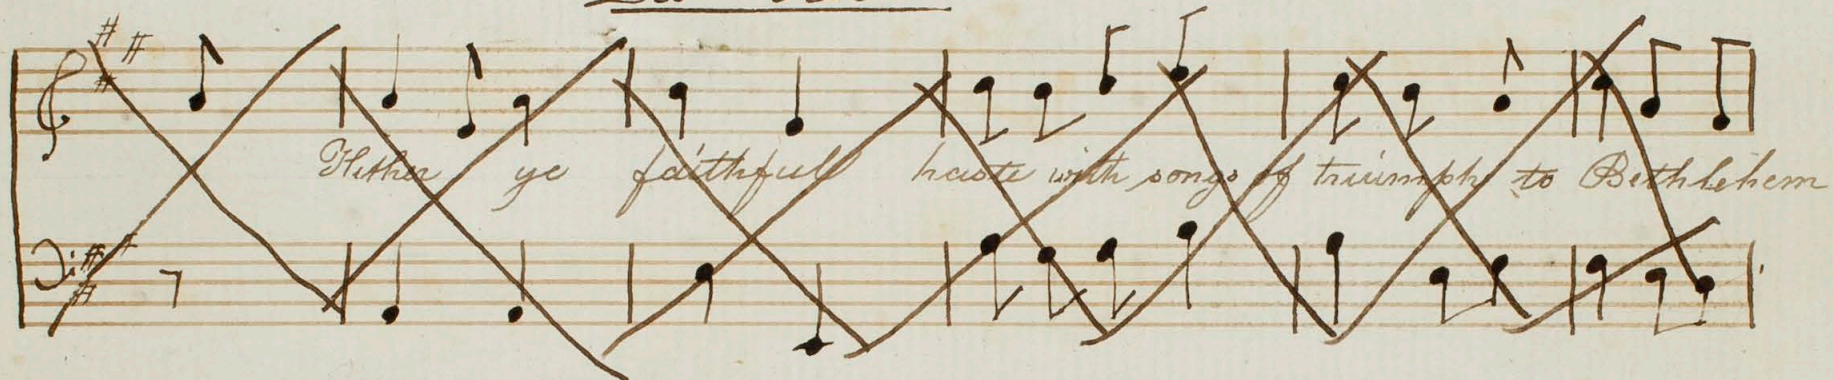 Hither ye faithfull haste with songs of triumph to Bethlehem